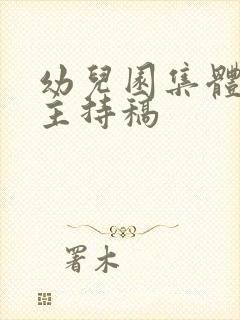 幼兒園集體
主持稿
署木